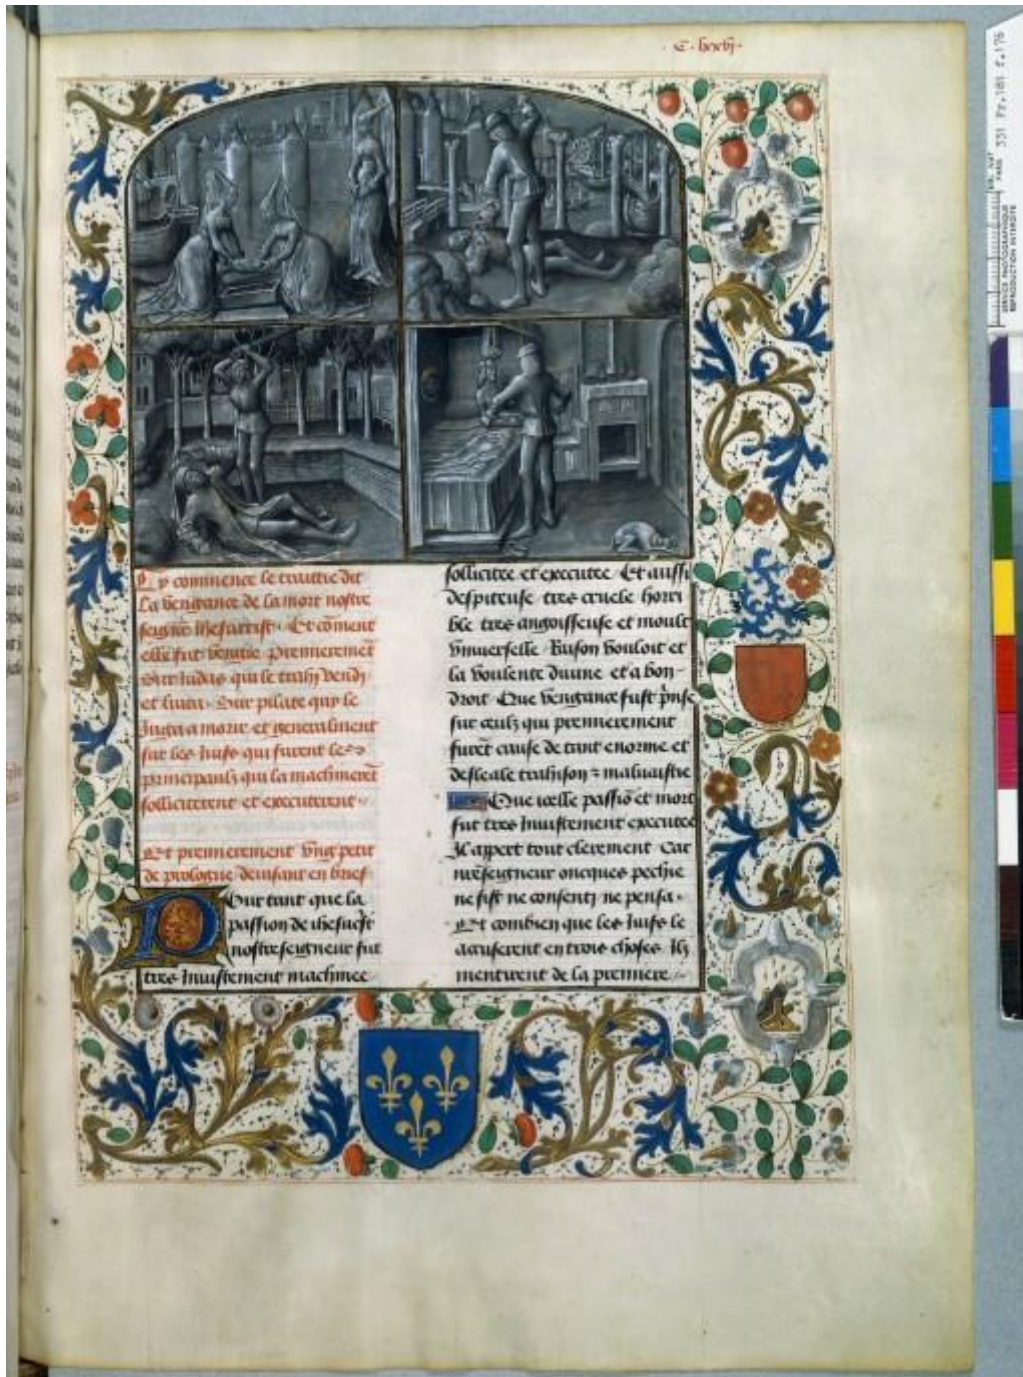 C. lxxvj.
Cy commence le traittie dit
La vengance de la mort nostre
seignr Ihesucrist. Et cōment
elle fut vengie Premieremēt
Sur Iudas qui le trahy vendy
et livra. Sur pilate qui le
Iuga a morir et generalment
sur les Iuifs qui furent les
principaulx qui la machinerēt
solliciterent et executerent.
Et premierement vng petit
de prologue devisant en brief
Pour tant que la
passion de ihesucrist
nostre seigneur fut
tres Iniustement machinee
sollicitee et executee. Et aussi
despiteuse tres cruele horri
ble tres angoisseuse et moult
vniuerselle. Raison vouloit et
la voulente divine et a bon
droit Que vengance fust prinse
sur ceulx qui premierement
furēt cause de tant enorme et
desleale trahison & mauvaistie
Que icelle passiō et mort
fut tres Iniustement executee
Il appert tout clerement Car
nrē seigneur oncques pechie
ne fist ne consenty ne pensa.
Et combien que les Iuifs le
accuserent en trois choses Ilz
mentirent de la premiere.
BIB. NAT
PARIS 331 Fr. 181 f.176
SERVICE PHOTOGRAPHIQUE
REPRODUCTION INTERDITE